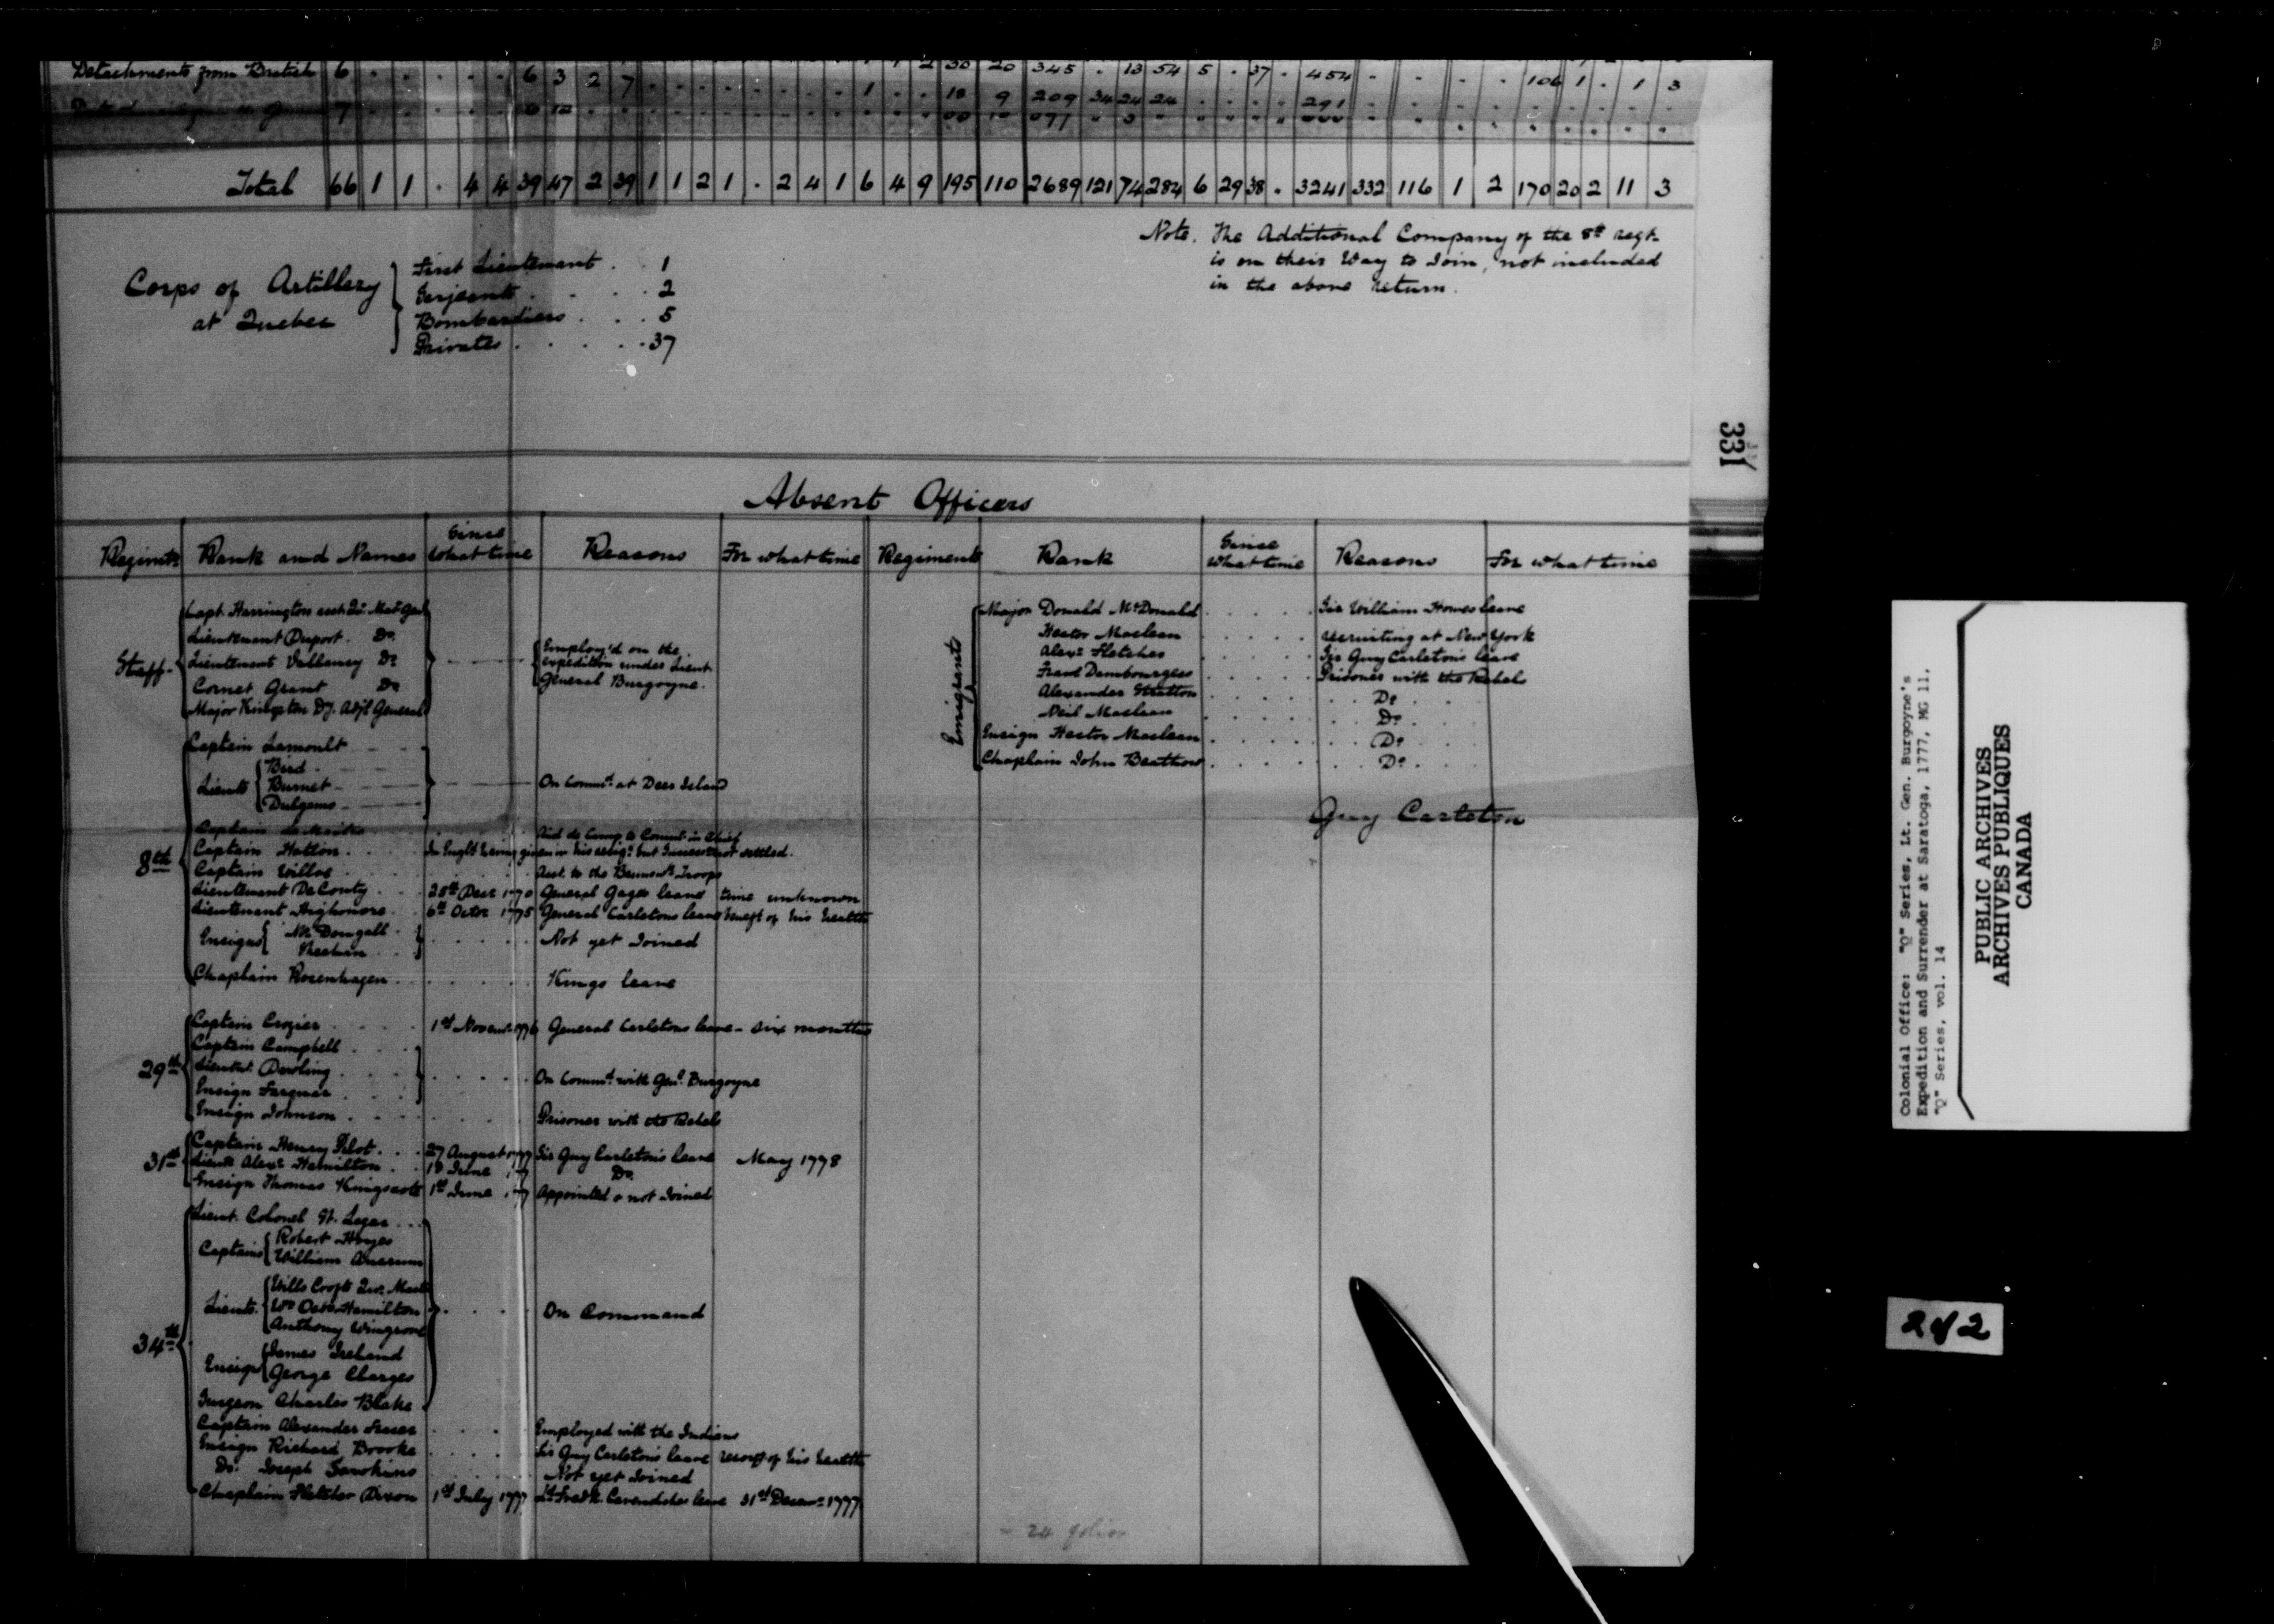 Detachments from British 6 . . . . . 6 3 2 7 . . . . . . . . . 2 30 20 345 . 13 54 5 . 37 . 454 . . . . 106 1 . 1 3
7 1 . . 18 9 209 34 24 24 . . . . 291
Total 66 1 1 . 4 4 39 47 2 39 1 1 2 1 . 2 4 1 6 4 9 195 110 2689 121 74 284 6 29 38 . 3241 332 116 1 2 170 20 2 11 3
Note. The Additional Company of the 8th Regt.
is on their Way to Join, not included
in the above Return.
Corps of Artillery
at Quebec
First Lieutenant . . 1
Serjeants . . . . 2
Bombardiers . . . 5
Privates . . . . . 37
331
Absent Officers
Regimts Rank and Names Since What time Reasons For what time Regiments Rank Since What time Reasons For what time
Staff
Capt. Harrington asst Qr. Mast Genl
Lieutenant Duport. Do.
Lieutenant Vallancy Do
Cornet Grant Do
Major Kingston Dy. Adjt General
Employ'd on the
expedition under Lieut
General Burgoyne.
8th
Captain Lamoult
Lieuts Bird
Burnet
Dulgomo
On Commd. at Deer Island
Captain Le Maitre Aid de Camp to Commr. in Chief
Captain Hatton . . . In Englд having given in his resign. but Successor not settled.
Captain Willoe Asst. to the Brunswk Troops
Lieutenant DeConty . . . 25th Decr 1770 General Gages leave time unknown
Lieutenant Highmore . . 6th Octor 1775 General Carletons leave benefit of his health
Ensigns Mc Dougall
Not yet Joined
Chaplain Rosenhagen . . . Kings leave
29th
Captain Crozier . . . 1st Novemr 1776 General Carletons leave - six months
Captain Campbell . . .
Lieutt. Dowling . . .
Ensign Farquar . . .
On Commd. with Genl. Burgoyne
Ensign Johnson . . . Prisoner with the Rebels
31st
Captain Henry Pilot . . . 27 August 1777 Sir Guy Carleton's leave May 1778
Lieutt Alexr Hamilton . . 18 June 177 Do.
Ensign Thomas Kingscote 1st June 177 Appointed & not Joined
34th
Lieut. Colonel St. Leger . . .
Captains Robert Hoyes
William Ancrum
Lieuts. Wills Crofts Qur. Mastr
Wm Osbn Hamilton
Anthony Wingrove
Ensigns James Ireland
George Clerges
Surgeon Charles Blake
On Command
Captain Alexander Fraser . . . Employed with the Indians
Ensign Richard Brooke . . . Sir Guy Carleton's leave recovy of his health
Do. Joseph Sawkins . . . Not yet Joined
Chaplain Fletcher Dixon 1st July 1777 Ld. Fredk. Cavendishes leave 31st Decemr 1777
Emigrants
Major Donald McDonald . . . . Sir William Howes leave
Hector Maclean . . . . recruiting at New York
Alexr Fletcher . . . . Sir Guy Carletons leave
Frans Dambourgess . . . . Prisoner with the Rebels
Alexander Stratton . . . . Do
Neil Maclean . . . . Do
Ensign Hector Maclean . . . . Do
Chaplain John Beathow . . . . Do
Guy Carleton
24 folios
Colonial Office: "Q" Series, Lt. Gen. Burgoyne's
Expedition and Surrender at Saratoga, 1777, MG 11,
"Q" Series, vol. 14
PUBLIC ARCHIVES
ARCHIVES PUBLIQUES
CANADA
2 of 2